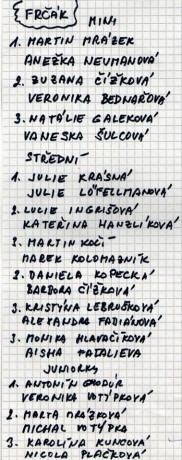 FRČÁK MINI
1. MARTIN MRÁZEK
ANEŽKA NEUMANOVÁ
2. ZUZANA ČÍŽKOVÁ
VERONIKA BEDNÁŘOVÁ
3. NATÁLIE GALEKOVÁ
VANESKA ŠULCOVÁ
STŘEDNÍ
1. JULIE KRÁSNÁ
JULIE LÖFELLMANOVÁ
2. LUCIE INGRIŠOVÁ
KATEŘINA HANZLÍKOVÁ
2. MARTIN KOČÍ
MAREK KOLOMAZNÍK
2. DANIELA KOPECKÁ
BARBORA ČÍŽKOVÁ
3. KRISTÝNA LEBRUŠKOVÁ
ALEXANDRA FABIÁNOVÁ
3. MONIKA HLAVAČÍKOVÁ
AISHA FATALIEVA
JUNIORKY
1. ANTONÍN
VERONIKA VOTÝPKOVÁ
2. MARTA MRÁZKOVÁ
MICHAL VOTÝPKA
3. KAROLÍNA KUNCOVÁ
NICOLA PLAČKOVÁ